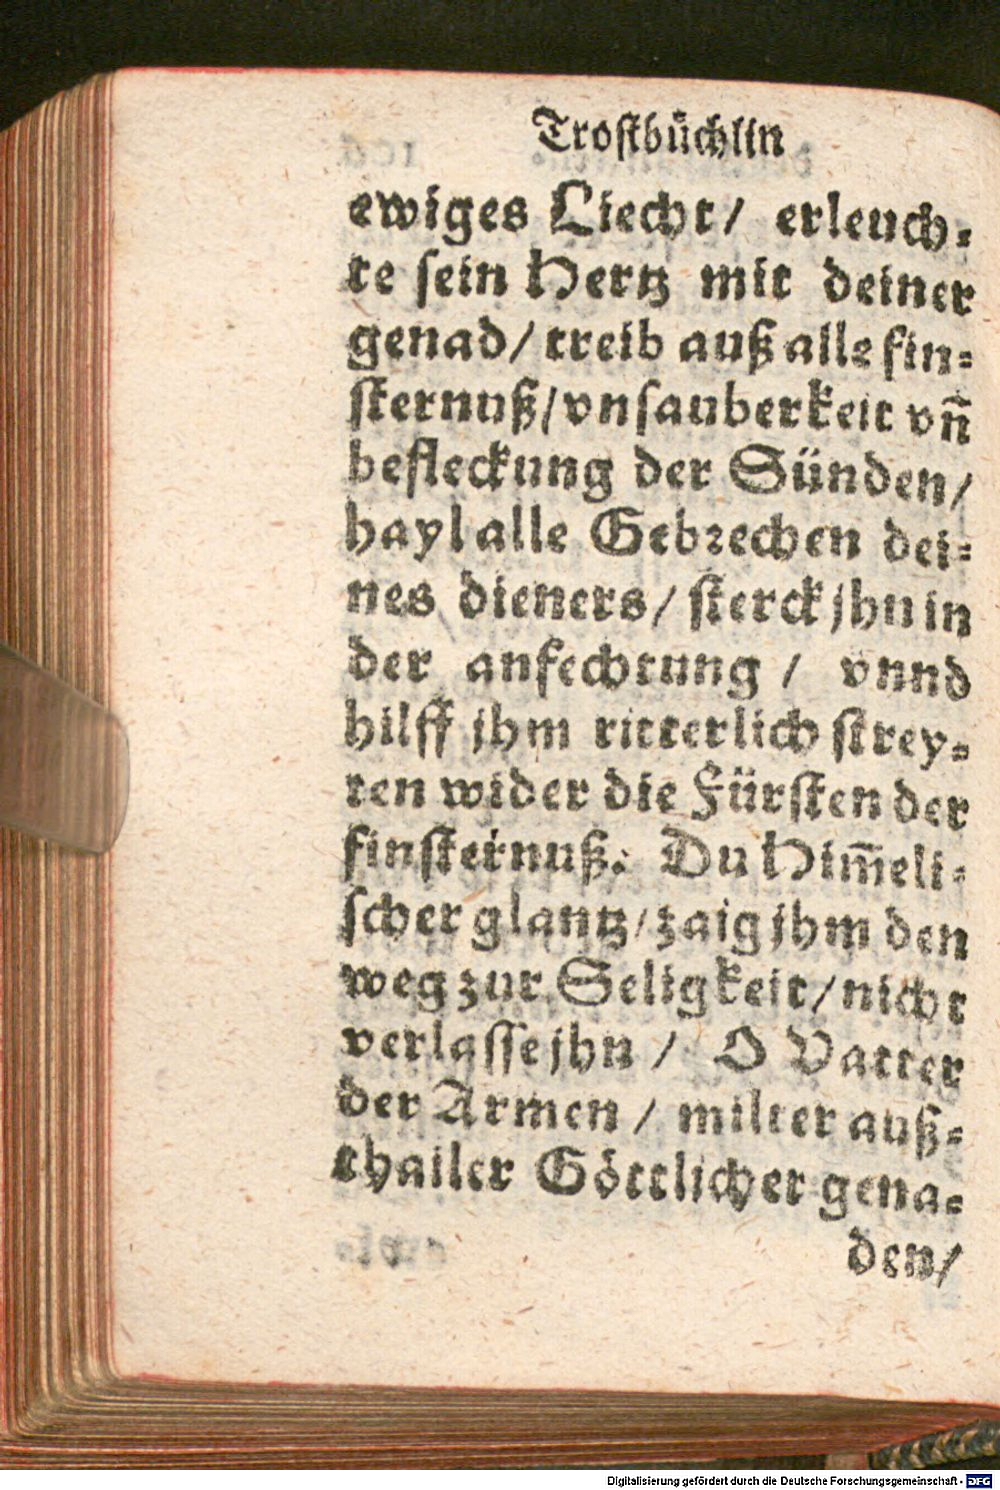 Trostbüchlin
ewiges Liecht/ erleuch-
te sein Hertz mit deiner
genad/ treib auß alle fin-
sternuß/ vnsauberkeit vñ
befleckung der Sünden/
hayl alle Gebrechen dei-
nes dieners/ sterck jhn in
der anfechtung / vnnd
hilff jhm ritterlich strey-
ten wider die Fürsten der
finsternuß. Du Him̄eli-
scher glantz/ zaig jhm den
weg zur Seligkeit/ nicht
verlasse jhn / O Vatter
der Armen / milter auß-
thailer Göttlicher gena-
den/
Digitalisierung gefördert durch die Deutsche Forschungsgemeinschaft - DFG